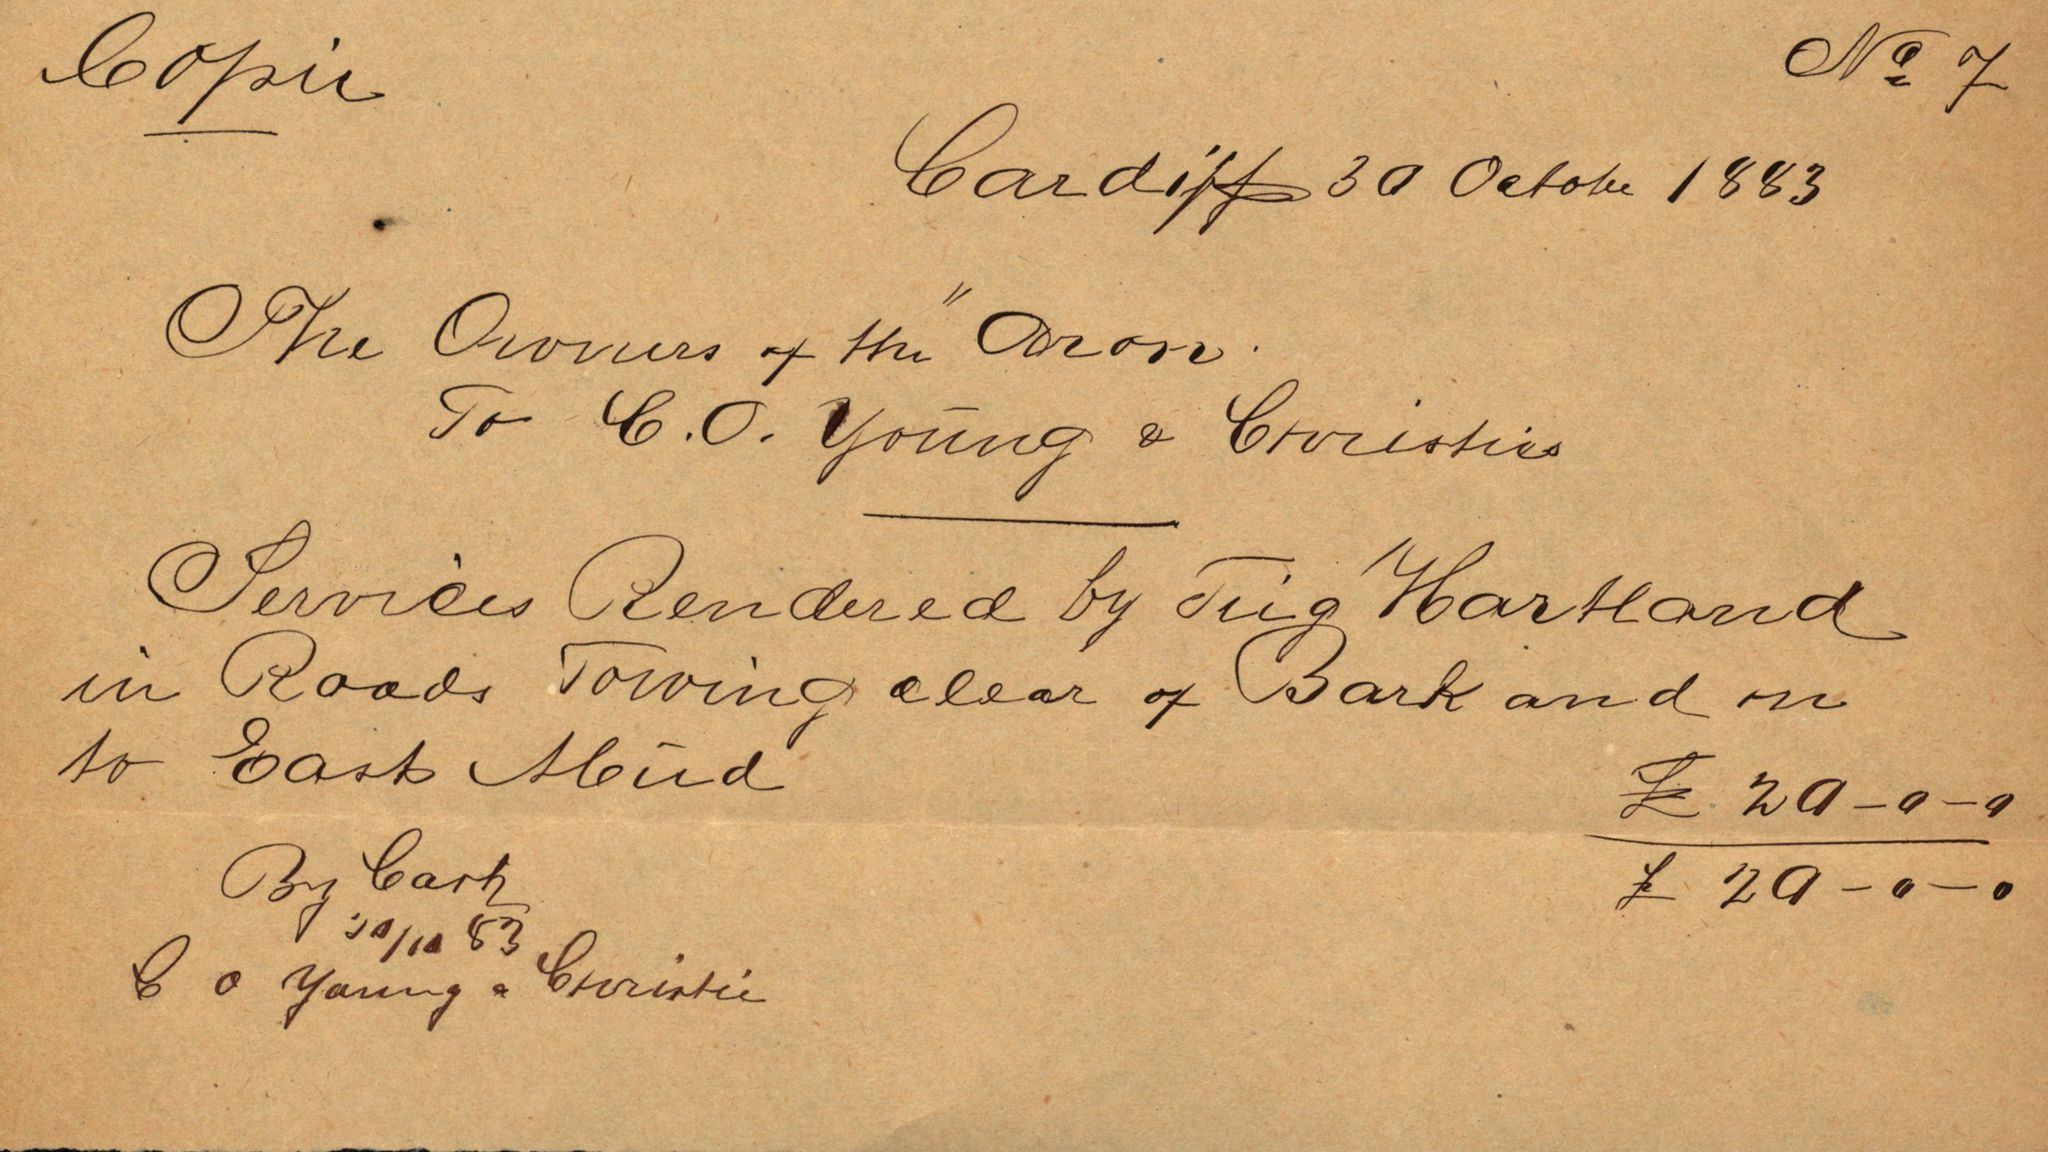 Copie
No 7
Cardiff 30 Octobe 1883
The Owners of the "Aron.
To C. O. Young & Christies
Services Rendered by Tug Hartland
in Roads Towing clear of Bark and on
to East Mud
£ 20-0-0
£ 20-0-0
By Cash
30/10 83
C O Young & Christie